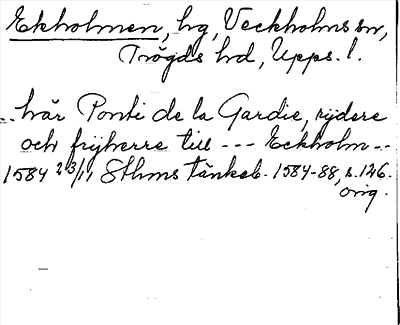 Ekholmen, hg, Veckholms sn,
Trögds hd, Upps. l.
.. här Ponti de la Gardie, rydere
och frijherre till --- Eckholm --
1584 23/11 Sthms tänkeb. 1584-88, s. 126.
orig.